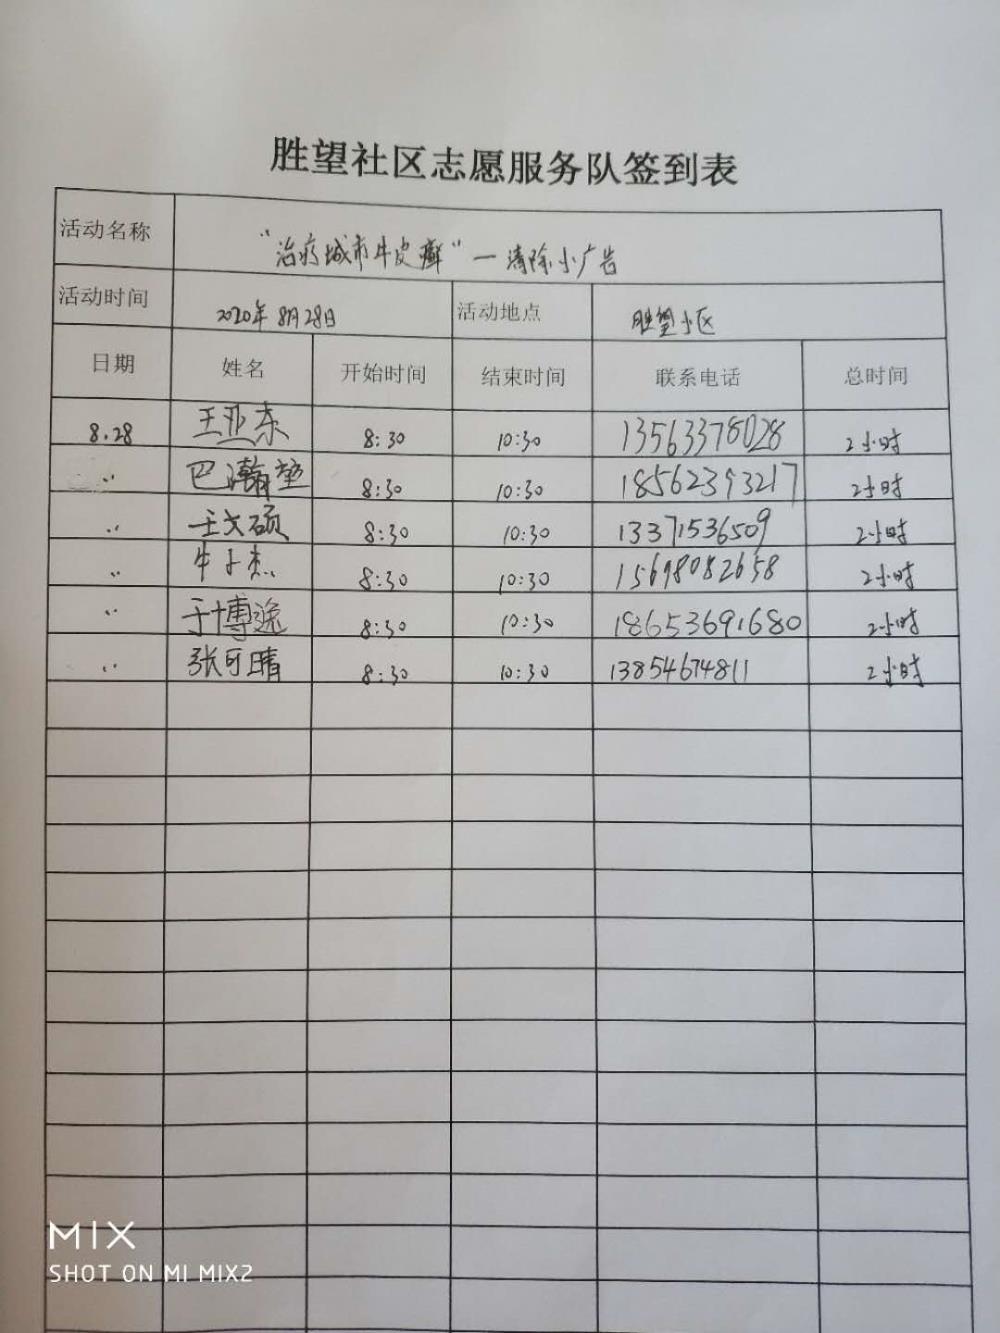 胜望社区志愿服务队签到表
活动名称 "治疗城市牛皮癣"一清除小广告
活动时间 2020年8月28日 活动地点 胜望小区
日期 姓名 开始时间 结束时间 联系电话 总时间
8.28 王亚东 8:30 10:30 13563378028 2小时
〃 巴瀚堃 8:30 10:30 18562393217 2小时
〃 王文硕 8:30 10:30 13371536509 2小时
〃 牛子杰 8:30 10:30 15698082658 2小时
〃 于博逸 8:30 10:30 18653691680 2小时
〃 张可晴 8:30 10:30 13854674811 2小时
MIX
SHOT ON MI MIX2